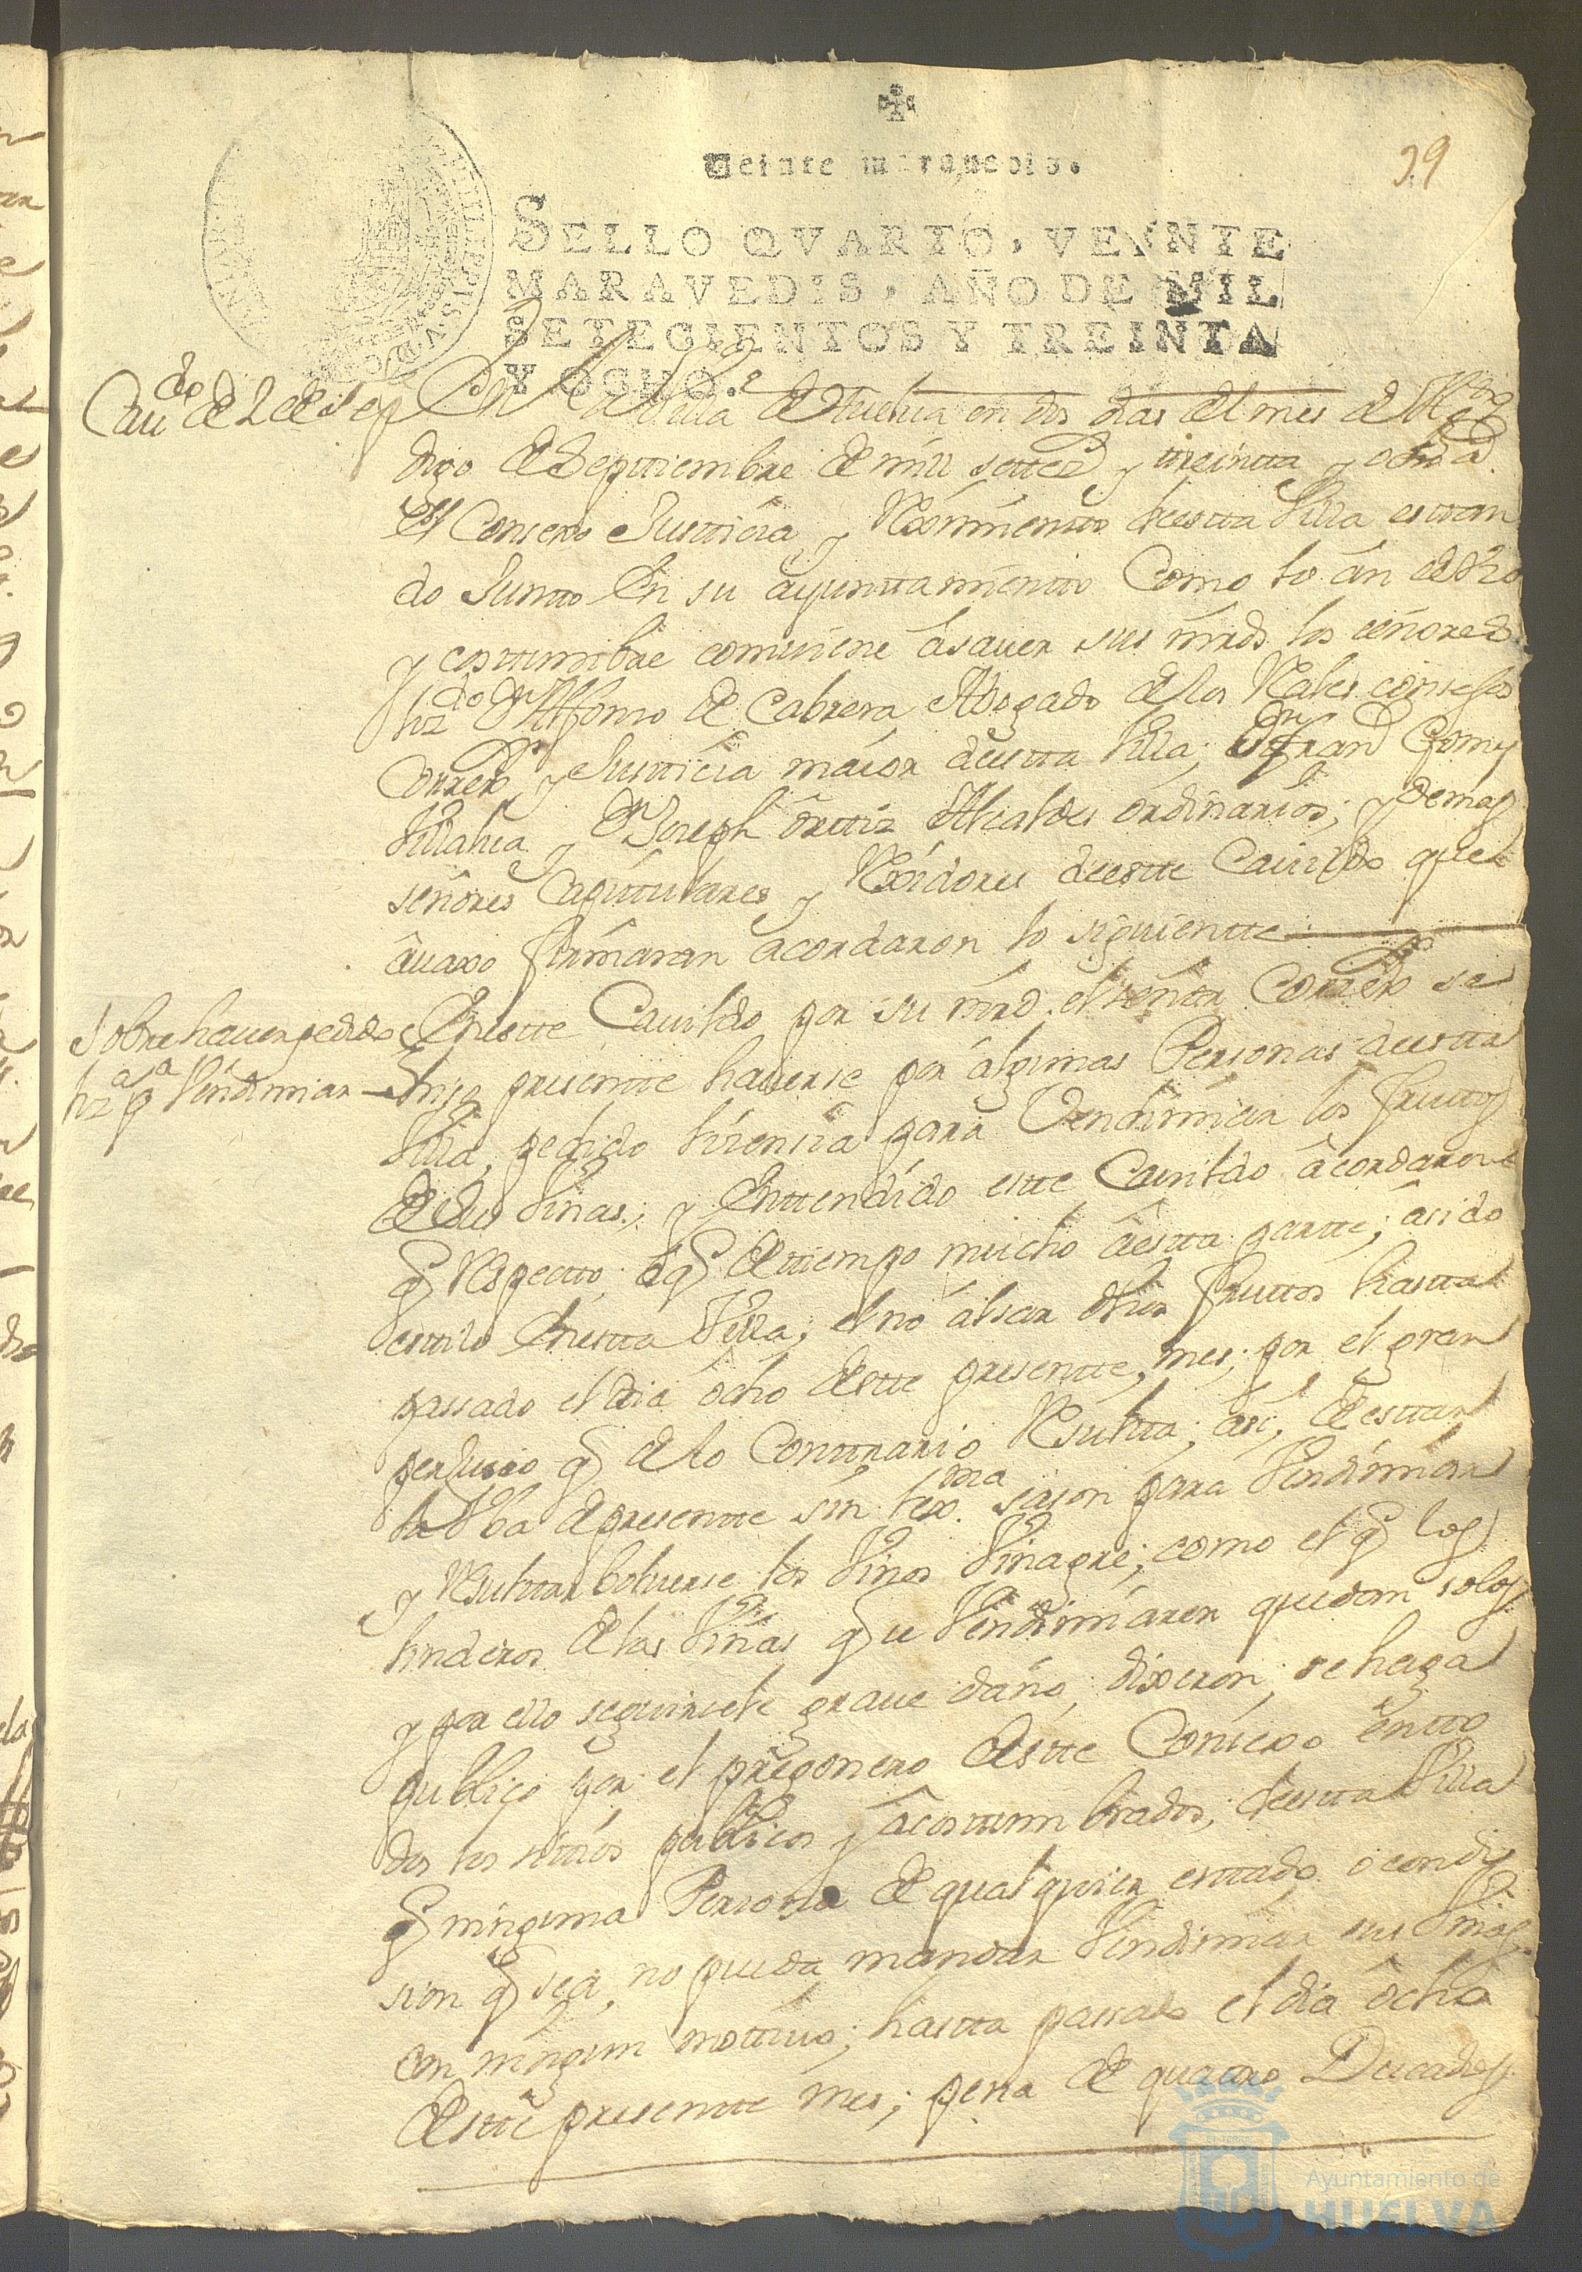 39
Veinte maravedis.
SELLO QVARTO, VEYNTE
MARAVEDIS, AÑO DE MIL
SETECIENTOS Y TREINTA
Y OCHO.
Cavdo de 2 de sep
En la Villa de Huelva en dos dias del mes de
digo de Septtiembre de mill settez y treintta y ocho a
el Consexo Justticia y Reximientto deestta Villa esttan
do Juntto En su ayunttamientto Como lo an de Uzo
y costtumbre combiene âsaver sus mrds los señores
lizdo Dn Alfonso de Cabrera Abogado de los Rales consejos
Correxr y Justticia maior deestta Villa; Dn Franco Gomz
Villalva y Dn Joseph orttiz Alcaldes ordinarios; y demas
señores Capittulares y Rexidores deestte Cavildo que
âvaxo firmaran acordaron lo siguientte
Sobre haver pedido
liza pa Vendimiar
Enestte Cavildo por su mrd. el señor Correxr se
hizo presentte haverse por algunas Personas deestta
Villa, pedido lizensia para Vendimiar los fruttos
de sus Viñas; y Enttendido estte Cavildo âcordaron
q Respectto, de q de ttiempo mucho âestta partte; âsido
estilo Enestta Villa; el no alsar dhos fruttos hastta
passado el dia ôcho destte presentte, mes; por el gran
perjuisio q de lo Conttrario Resultta; asi, de esttar
la Uba de presentte sin lexma sason para Vendimiar
y Resulttar bolverse los Vinos Vinagre; como el q los
linderos de las Viñas q se Vendimiaren quedan solos
y por ello seguirsele grave daño; dixeron, se haga
publico por el pregonero destte Consexo entto
dos los sittios publicos y âcosttumbrados; deestta Villa
q ninguna Persona de qualquier esttado o condi
sion q sea, no pueda mandar Vendimiar sus Viñas
con ningun mottivo; hastta passado el dia ôcho
destte presentte mes; pena de quattro Ducados
Ayuntamiento de
HUELVA